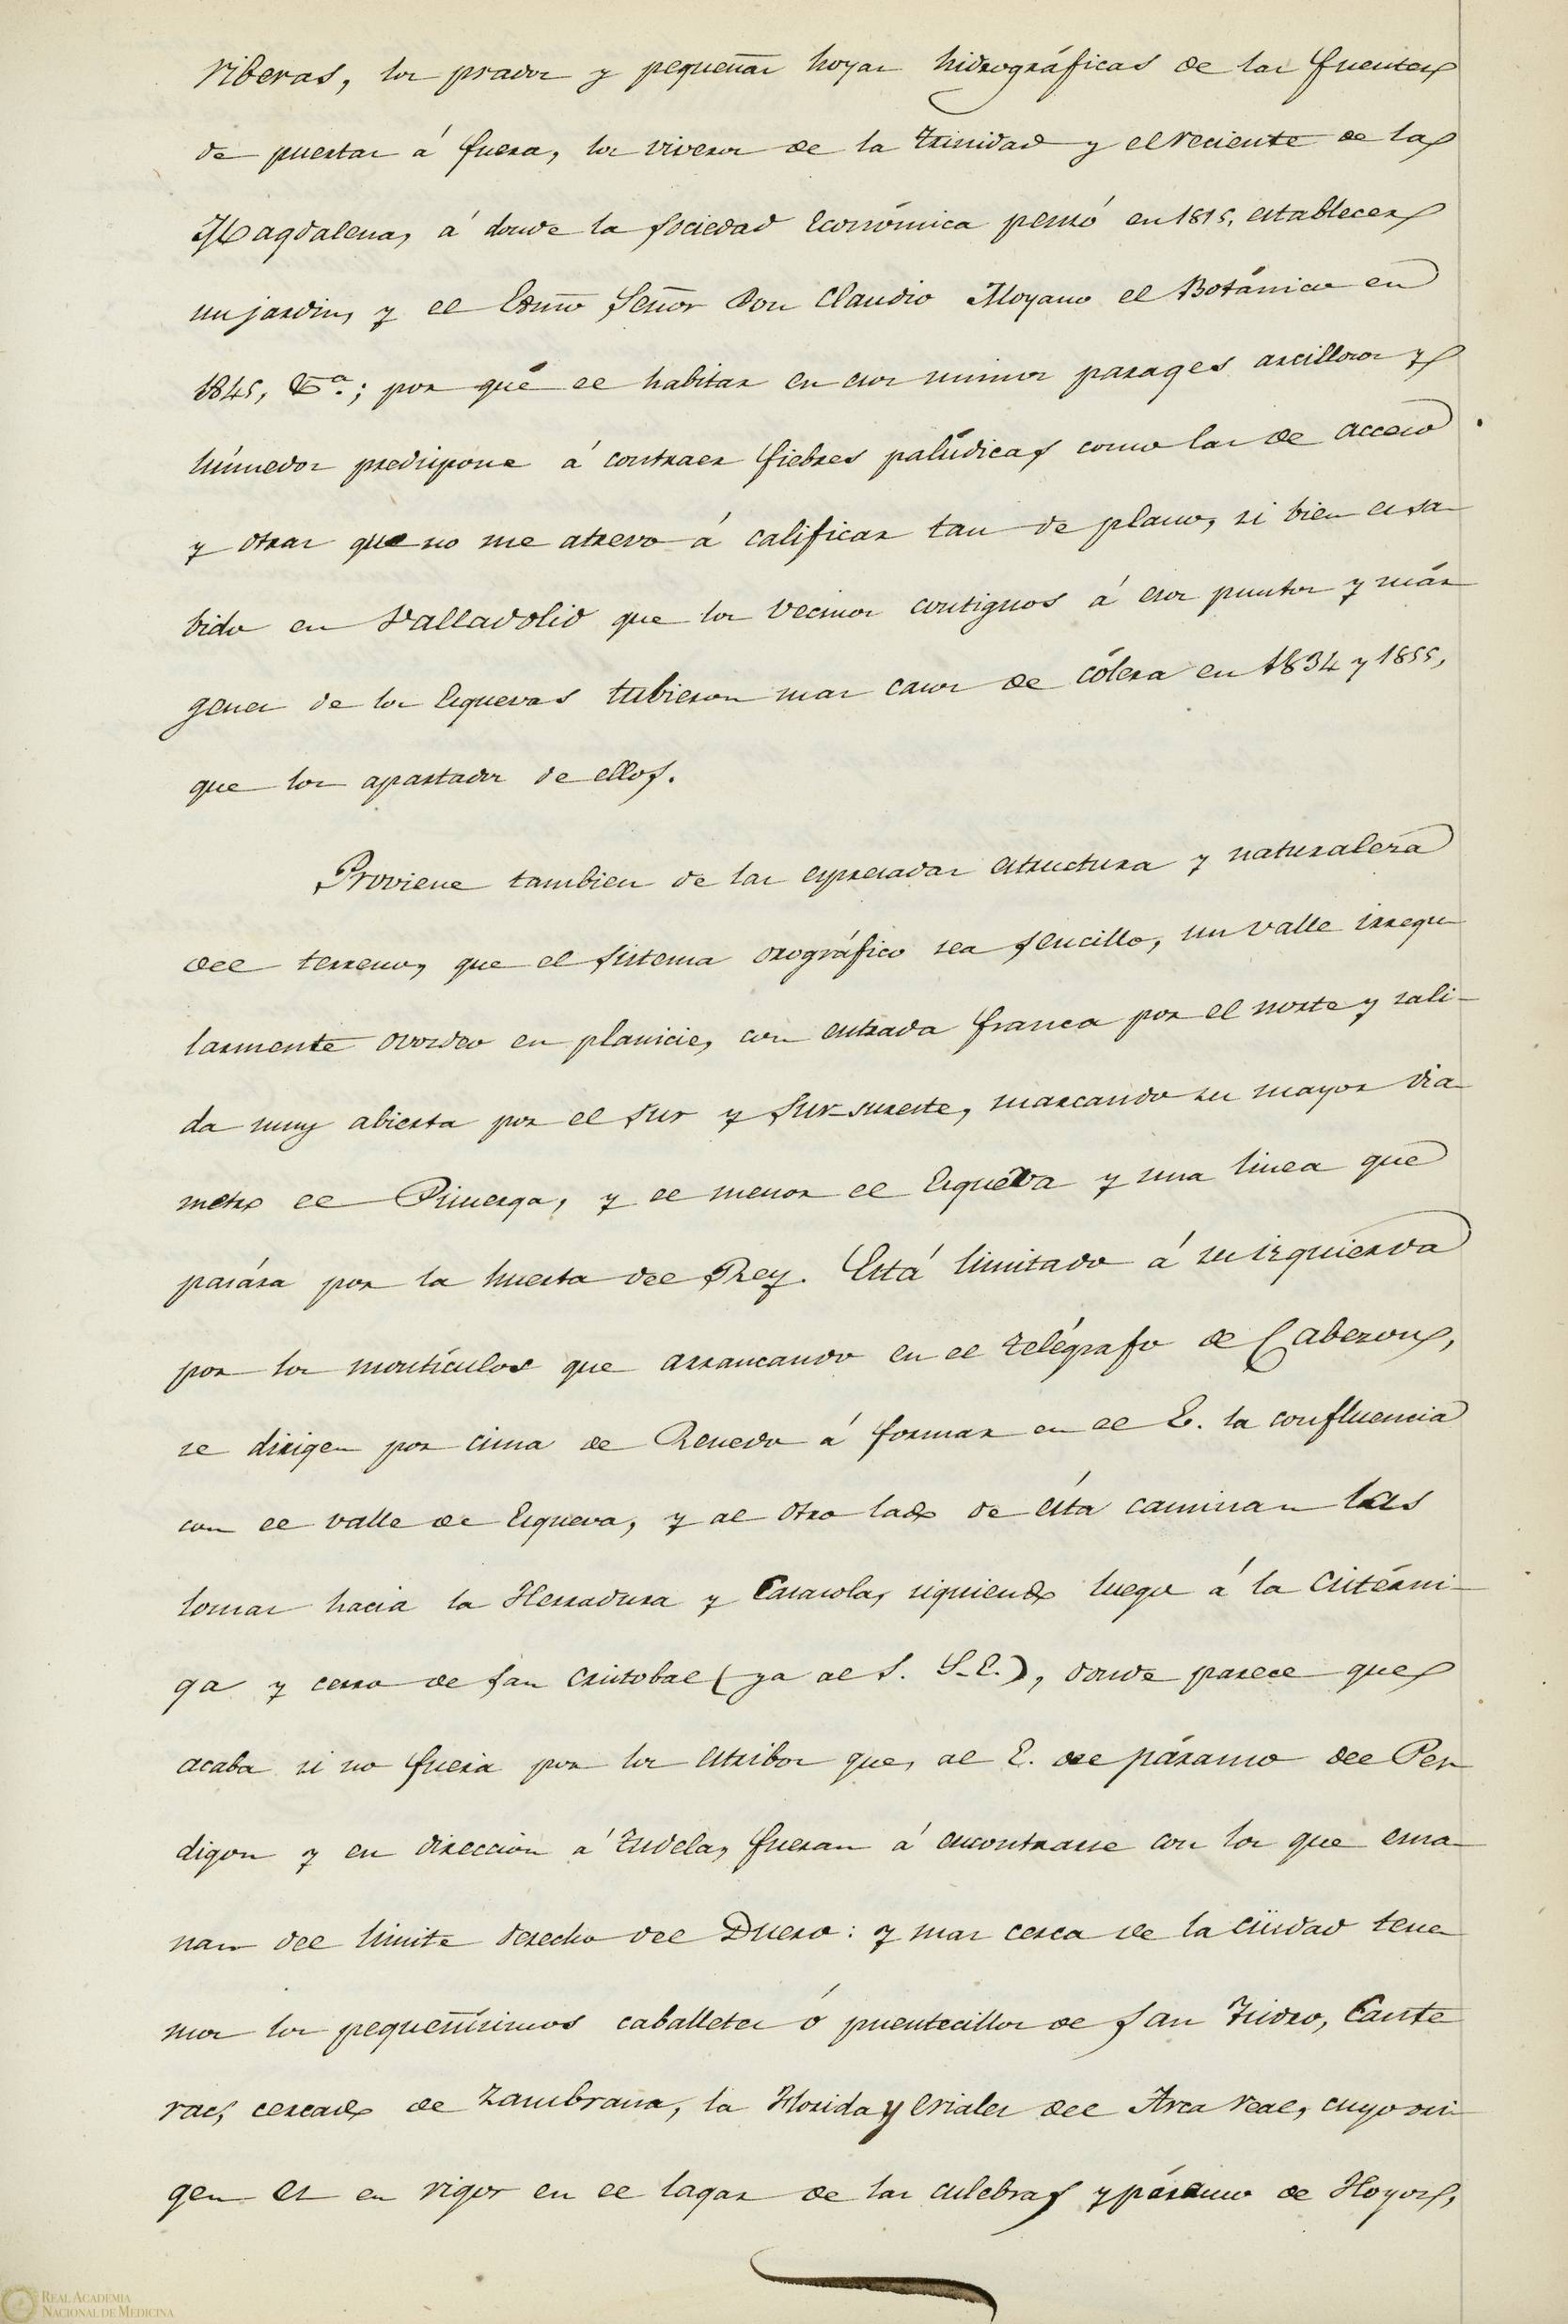 riberas, los prados y pequeñas hoyas hidrográficas de las fuentes
de puertas á fuera, los viveros de la Trinidad y el reciente de la
Magdalena, á donde la Sociedad Económica pensó en 1815, establecer
un jardin, y el Exmo Señor Don Claudio Moyano el Botánico en
1845, &a.; por qué el habitar en esos mismos parages arcillosos y
húmedos predispone á contraer fiebres palúdicas como las de acceso
y otras que no me atrevo á calificar tan de plano, si bien es sa
bido en Valladolid que los vecinos contiguos á esos puntos y már
genes de los Esguevas tubieron mas casos de cólera en 1834 y 1855,
que los apartados de ellos.
Proviene tambien de las expresadas estructura y naturaleza
del terreno, que el sistema orográfico sea sencillo, un valle irregu
larmente ovoideo en planicie, con entrada franca por el norte y sali-
da muy abierta por el sur y sur-sureste, marcando su mayor diá
metro el Pisuerga, y el menor el Esgueva y una linea que
pasára por la huerta del Rey. Está limitado á su izquierda
por los montículos que arrancando en el telégrafo de Cabezon,
se dirigen por cima de Renedo á formar en el E. la confluencia
con el valle de Esgueva, y al otro lado de ésta caminan las
lomas hacia la Herradura y Casasola, siguiendo luego á la Cistérni-
ga y cerro de San Cristobal (ya al S. S-E.), donde parece que
acaba si no fuera por los estribos que, al E. del páramo del Per
digon y en direccion á Tudela, fueran á encontrarse con los que ema
nan del limite derecho del Duero: y mas cerca de la ciudad tene
mos los pequeñísimos caballetes ó puentecillos de San Isidro, Cante
ras, cercado de Zambrana, la Florida y eriales del Arca real, cuyo orí
gen es en rigor en el lagar de las culebras y páramo de Hoyos,
REAL ACADEMIA
NACIONAL DE MEDICINA